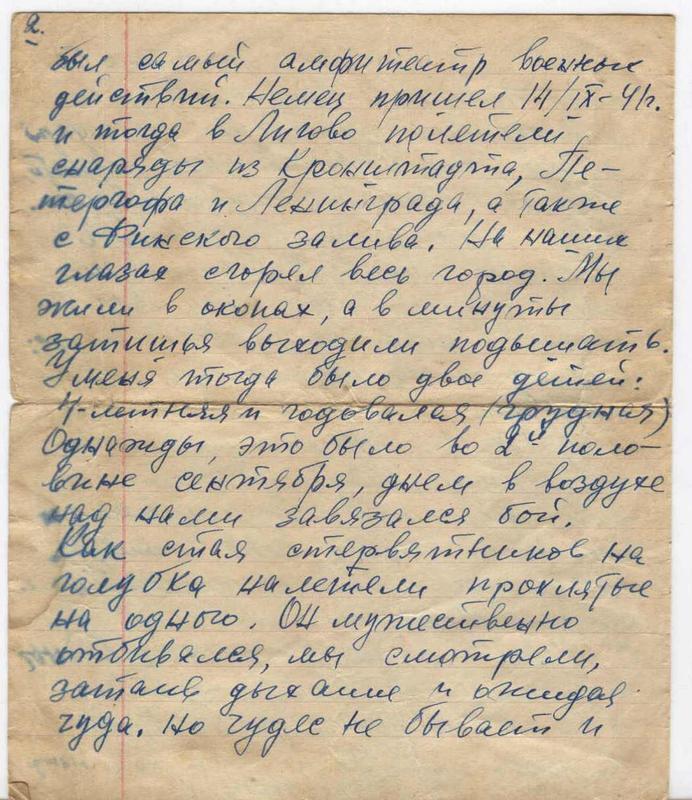 2.
был самый амфитеатр военных
действий. Немец пришел 14/IX-41г.
и тогда в Лигово полетели
снаряды из Кронштадта, Пе-
тергофа и Ленинграда, а также
с Финского залива. На наших
глазах сгорел весь город. Мы
жили в окопах, а в минуты
затишья выходили подышать.
У меня тогда было двое детей:
4-летняя и годовалая (грудная)
Однажды, это было во 2й поло-
вине сентября, днем в воздухе
над нами завязался бой.
Как стая стервятников на
голубка налетели проклятые
на одного. Он мужественно
отбивался, мы смотрели,
затаив дыхание и ожидая
чуда. Но чудес не бывает и